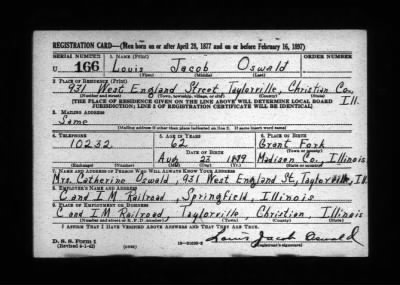 REGISTRATION CARD—(Men born on or after April 28, 1877 and on or before February 16, 1897)
SERIAL NUMBER 1. NAME (Print) ORDER NUMBER
U 166 Louis Jacob Oswald
(First) (Middle) (Last)
2. PLACE OF RESIDENCE (Print)
931 West England Street Taylorville, Christian Co., Ill.
(Number and street) (Town, township, village, or city) (County) (State)
[THE PLACE OF RESIDENCE GIVEN ON THE LINE ABOVE WILL DETERMINE LOCAL BOARD
JURISDICTION; LINE 2 OF REGISTRATION CERTIFICATE WILL BE IDENTICAL]
3. MAILING ADDRESS
Same
[Mailing address if other than place indicated on line 2. If same insert word same]
4. TELEPHONE 5. AGE IN YEARS 6. PLACE OF BIRTH
10232 62 Grant Fork
DATE OF BIRTH (Town or county)
Aug 23 Madison Co., Illinois
(Exchange) (Number) (Mo.) (Day) (Yr.) (State or country)
7. NAME AND ADDRESS OF PERSON WHO WILL ALWAYS KNOW YOUR ADDRESS
Mrs. Catherine Oswald, 931 West England St, Taylorville, Ill.
8. EMPLOYER'S NAME AND ADDRESS
C and I M Railroad, Springfield, Illinois
9. PLACE OF EMPLOYMENT OR BUSINESS
C and I M Railroad, Taylorville, Christian, Illinois
(Number and street or R. F. D. number) (Town) (County) (State)
I AFFIRM THAT I HAVE VERIFIED ABOVE ANSWERS AND THAT THEY ARE TRUE.
D. S. S. Form 1
(Revised 4-1-42) (over) Louis Jacob Oswald
(Registrant's signature)